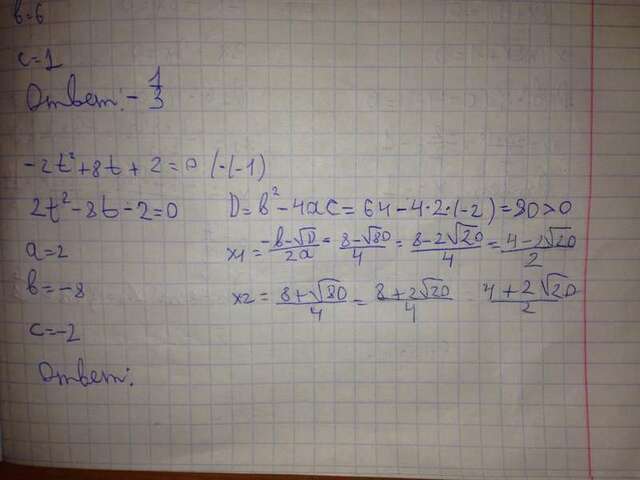 в=6
с=1
Ответ: -1/3
-2t²+8t+2=0 (·(-1)
2t²-8t-2=0 D=в²-4ac=64-4·2·(-2)=80>0
a=2 x1=(-в-√D)/2a=(8-√80)/4=(8-2√20)/4=(4-2√20)/2
в=-8 x2=(8+√80)/4=(8+2√20)/4 (4+2√20)/2
с=-2
Ответ: